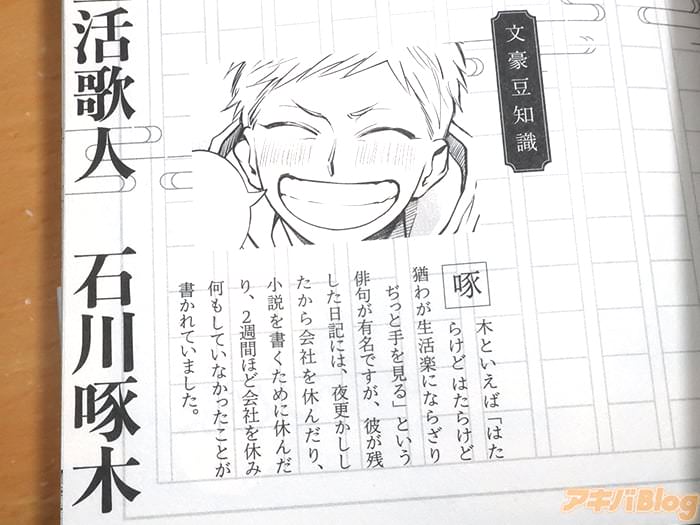 文豪豆知識
啄木といえば「はた
らけど はたらけど
猶わが生活楽にならざり
ぢっと手を見る」という
俳句が有名ですが、彼が残
した日記には、夜更かしし
たから会社を休んだり、
小説を書くために休んだ
り、2週間ほど会社を休み
何もしていなかったことが
書かれていました。
活歌人 石川啄木
アキバBlog